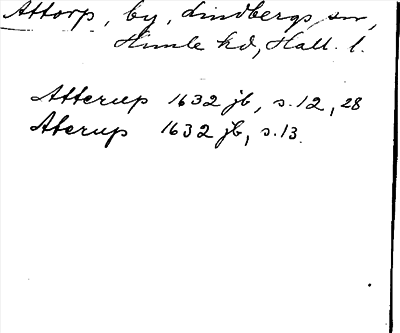 Attorp, by, Lindbergs sn,
Himle hd, Hall. l.
Atterup 1632 jb, s. 12, 28
Aterup 1632 jb, s. 13.